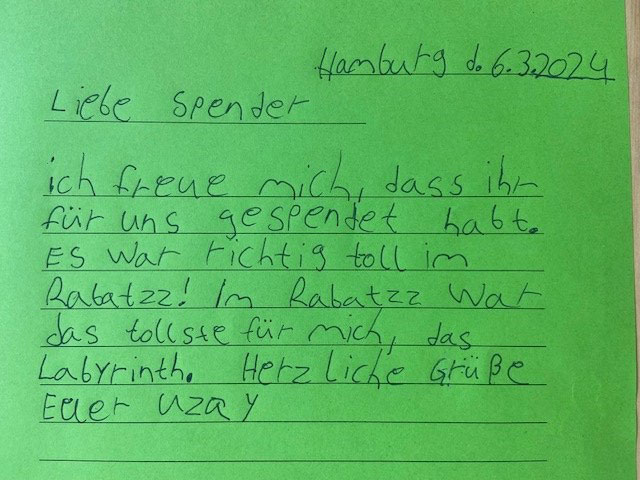 Hamburg d. 6.3.2024
Liebe Spender
ich freue mich, dass ihr
für uns gespendet habt.
Es war richtig toll im
Rabatzz! Im Rabatzz war
das tollste für mich, das
Labyrinth. Herzliche Grüße
Euer Uzay